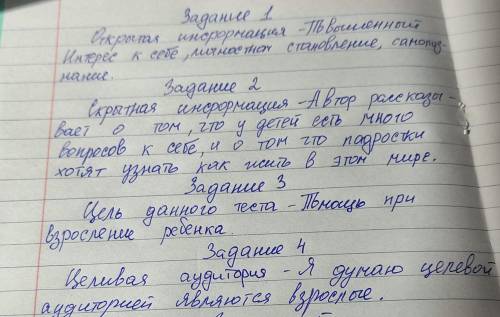 Задание 1
Открытая информация - Повышенный
Интерес к себе, личностное становление, самопоз-
нание.
Задание 2
Скрытная информация - Автор рассказы-
вает о том, что у детей есть много
вопросов к себе, и о том что подростки
хотят узнать как жить в этом мире.
Задание 3
Цель данного теста - Помощь при
взросление ребенка.
Задание 4
Целивая аудитория - Я думаю целевой
аудиторией являются взрослые.